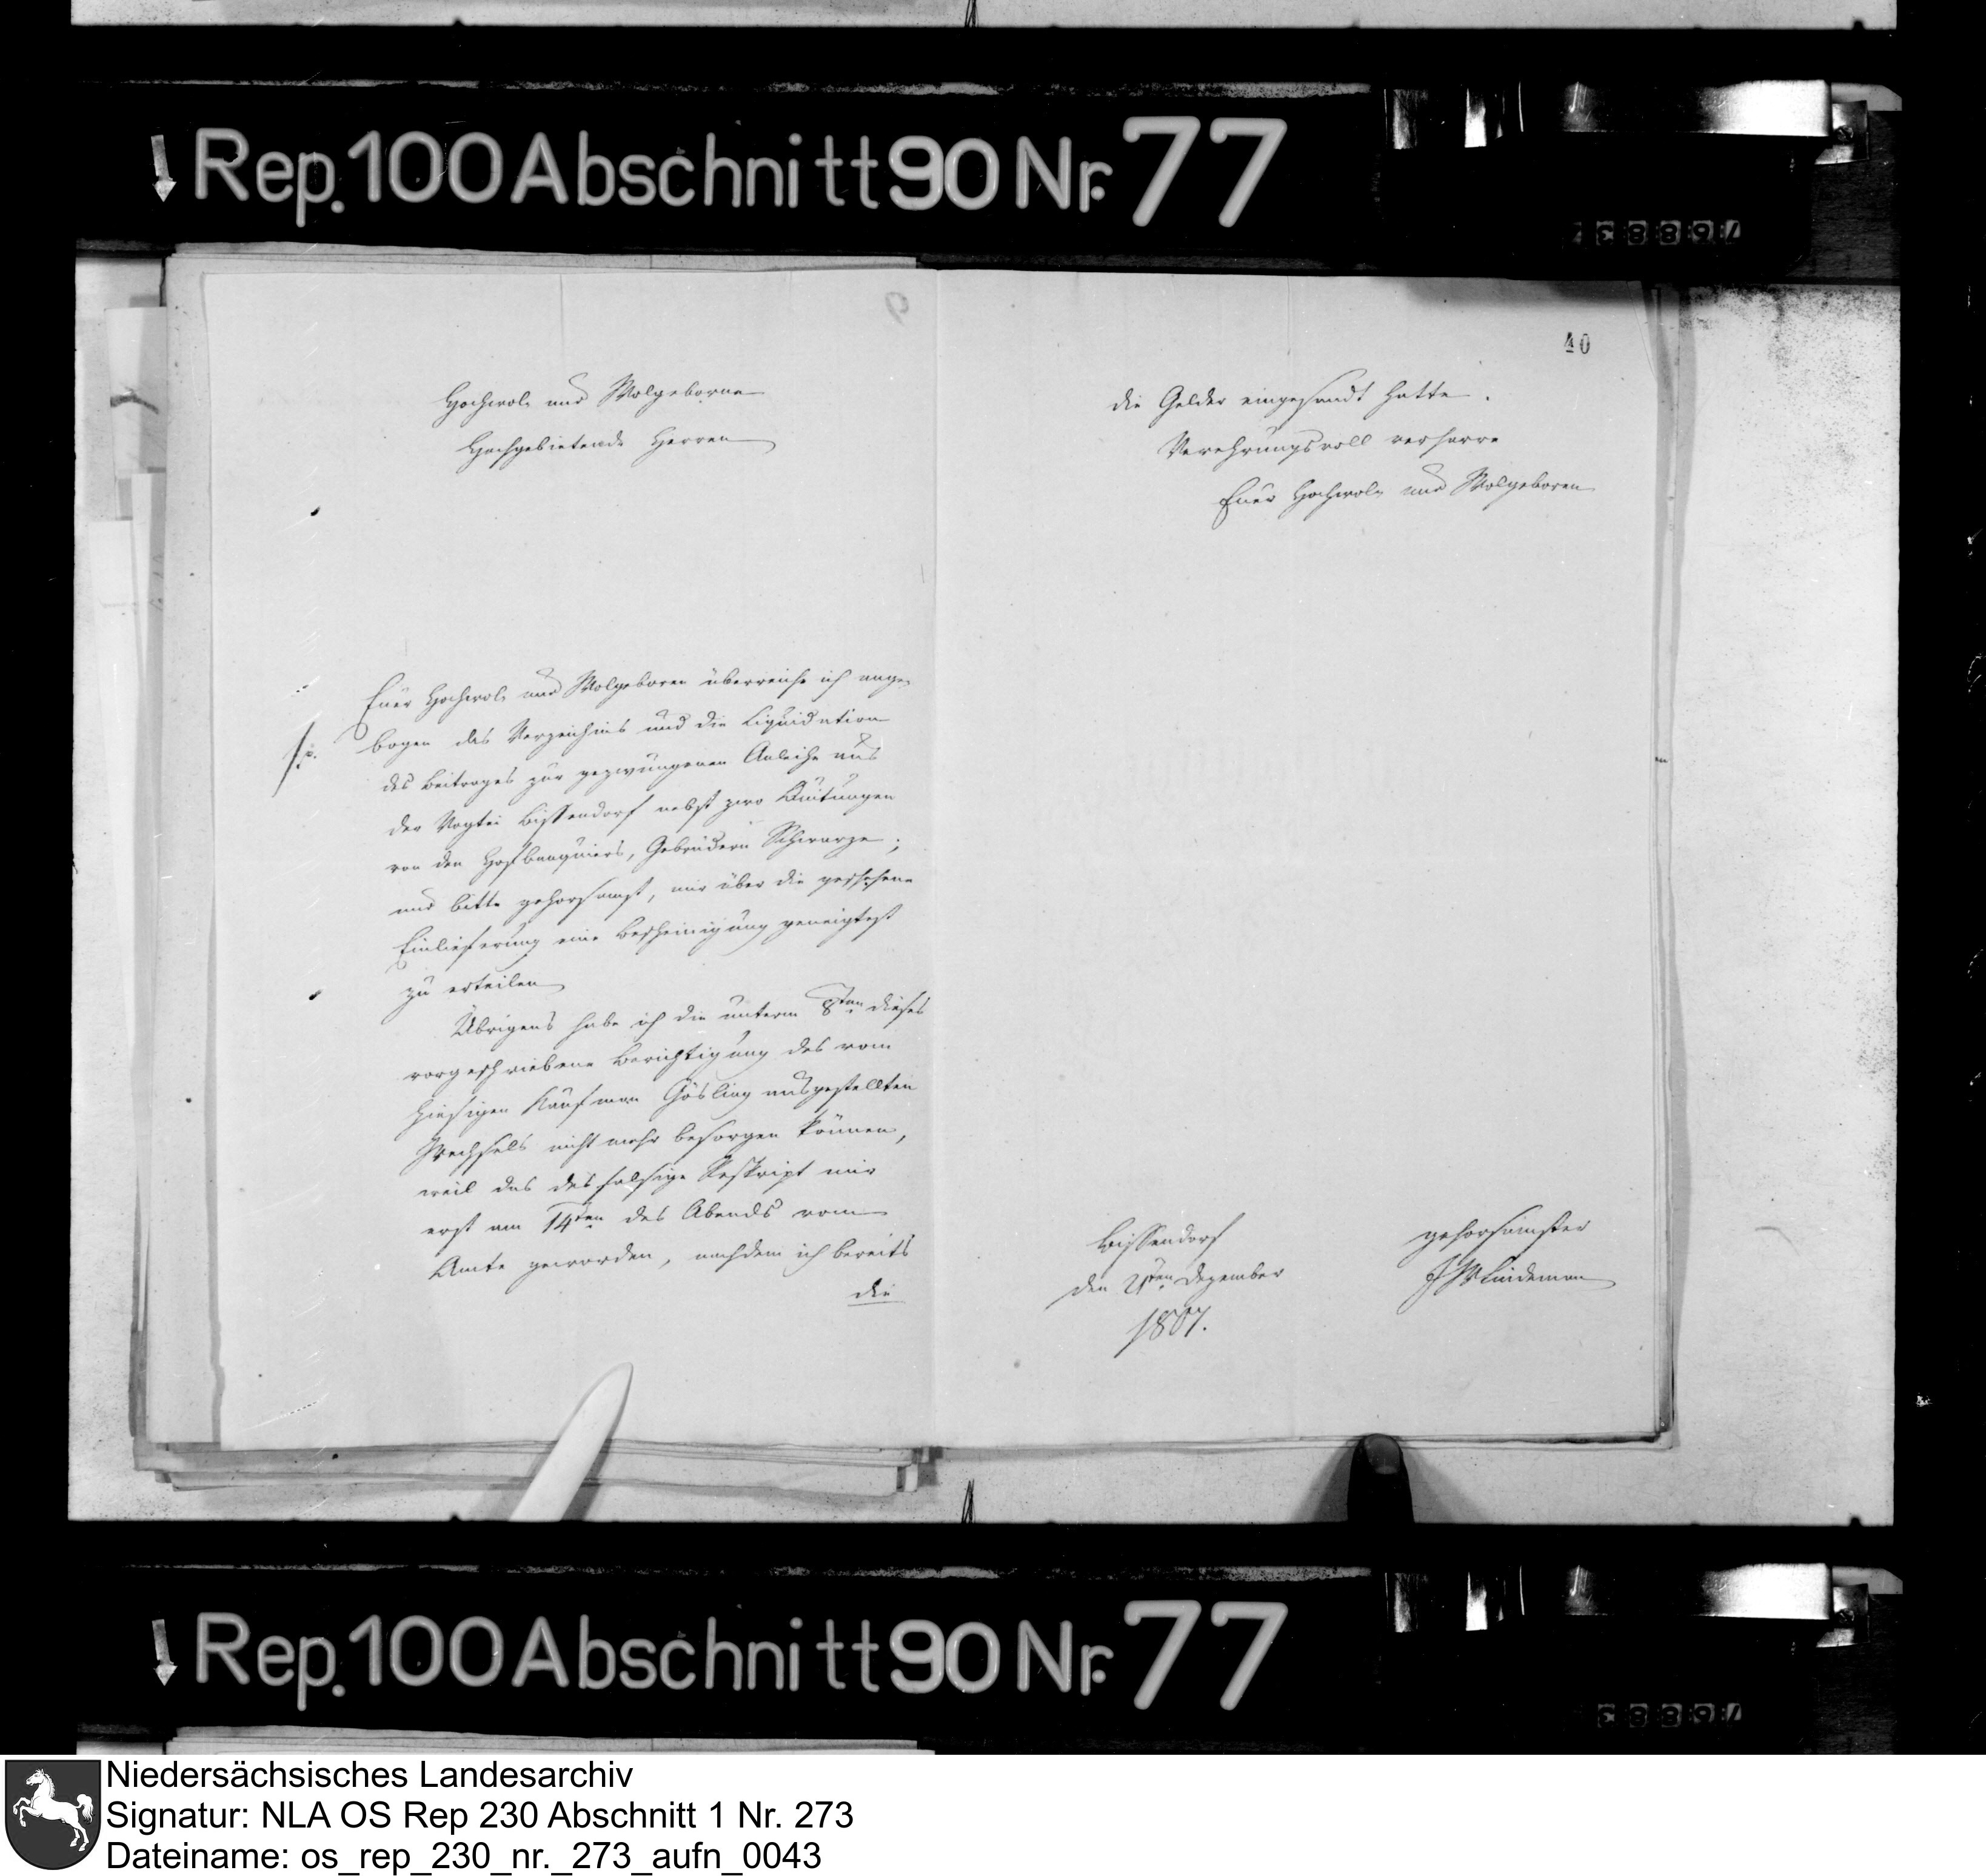 Rep. 100 Abschnitt 90 Nr. 77
40
Hochwol- und Wolgeborne
Hochgebietende Herren
Euer Hochwol- und Wolgeboren überreiche ich ange-
bogen das Verzeichnis und die Liquidation
des Beitrages zur gezwungenen Anleihe aus
der Vogtei Bissendorf nebst zwo Quitungen
von den Hofbanquiers, Gebrüdern Schwarze;
und bitte gehorsamst, mir über die geschehene
Einlieferung eine Bescheinigung geneigtest
zu erteilen
Übrigens habe ich die unterm 8ten dieses
vorgeschriebene Berichtigung des vom
hiesigen Kaufman Gösling ausgestellten
Wechsels nicht mehr besorgen können,
weil das desfalsige Reskript mir
erst am 14ten des Abends vom
Amte geworden, nachdem ich bereits
die
die Gelder eingesandt hatte.
Verehrungsvoll verharre
Euer Hochwol- und Wolgeboren
Bissendorf
den 21ten Dezember
1807.
gehorsamster
JW Lindeman
Rep. 100 Abschnitt 90 Nr. 77
Niedersächsisches Landesarchiv
Signatur: NLA OS Rep 230 Abschnitt 1 Nr. 273
Dateiname: os_rep_230_nr._273_aufn_0043